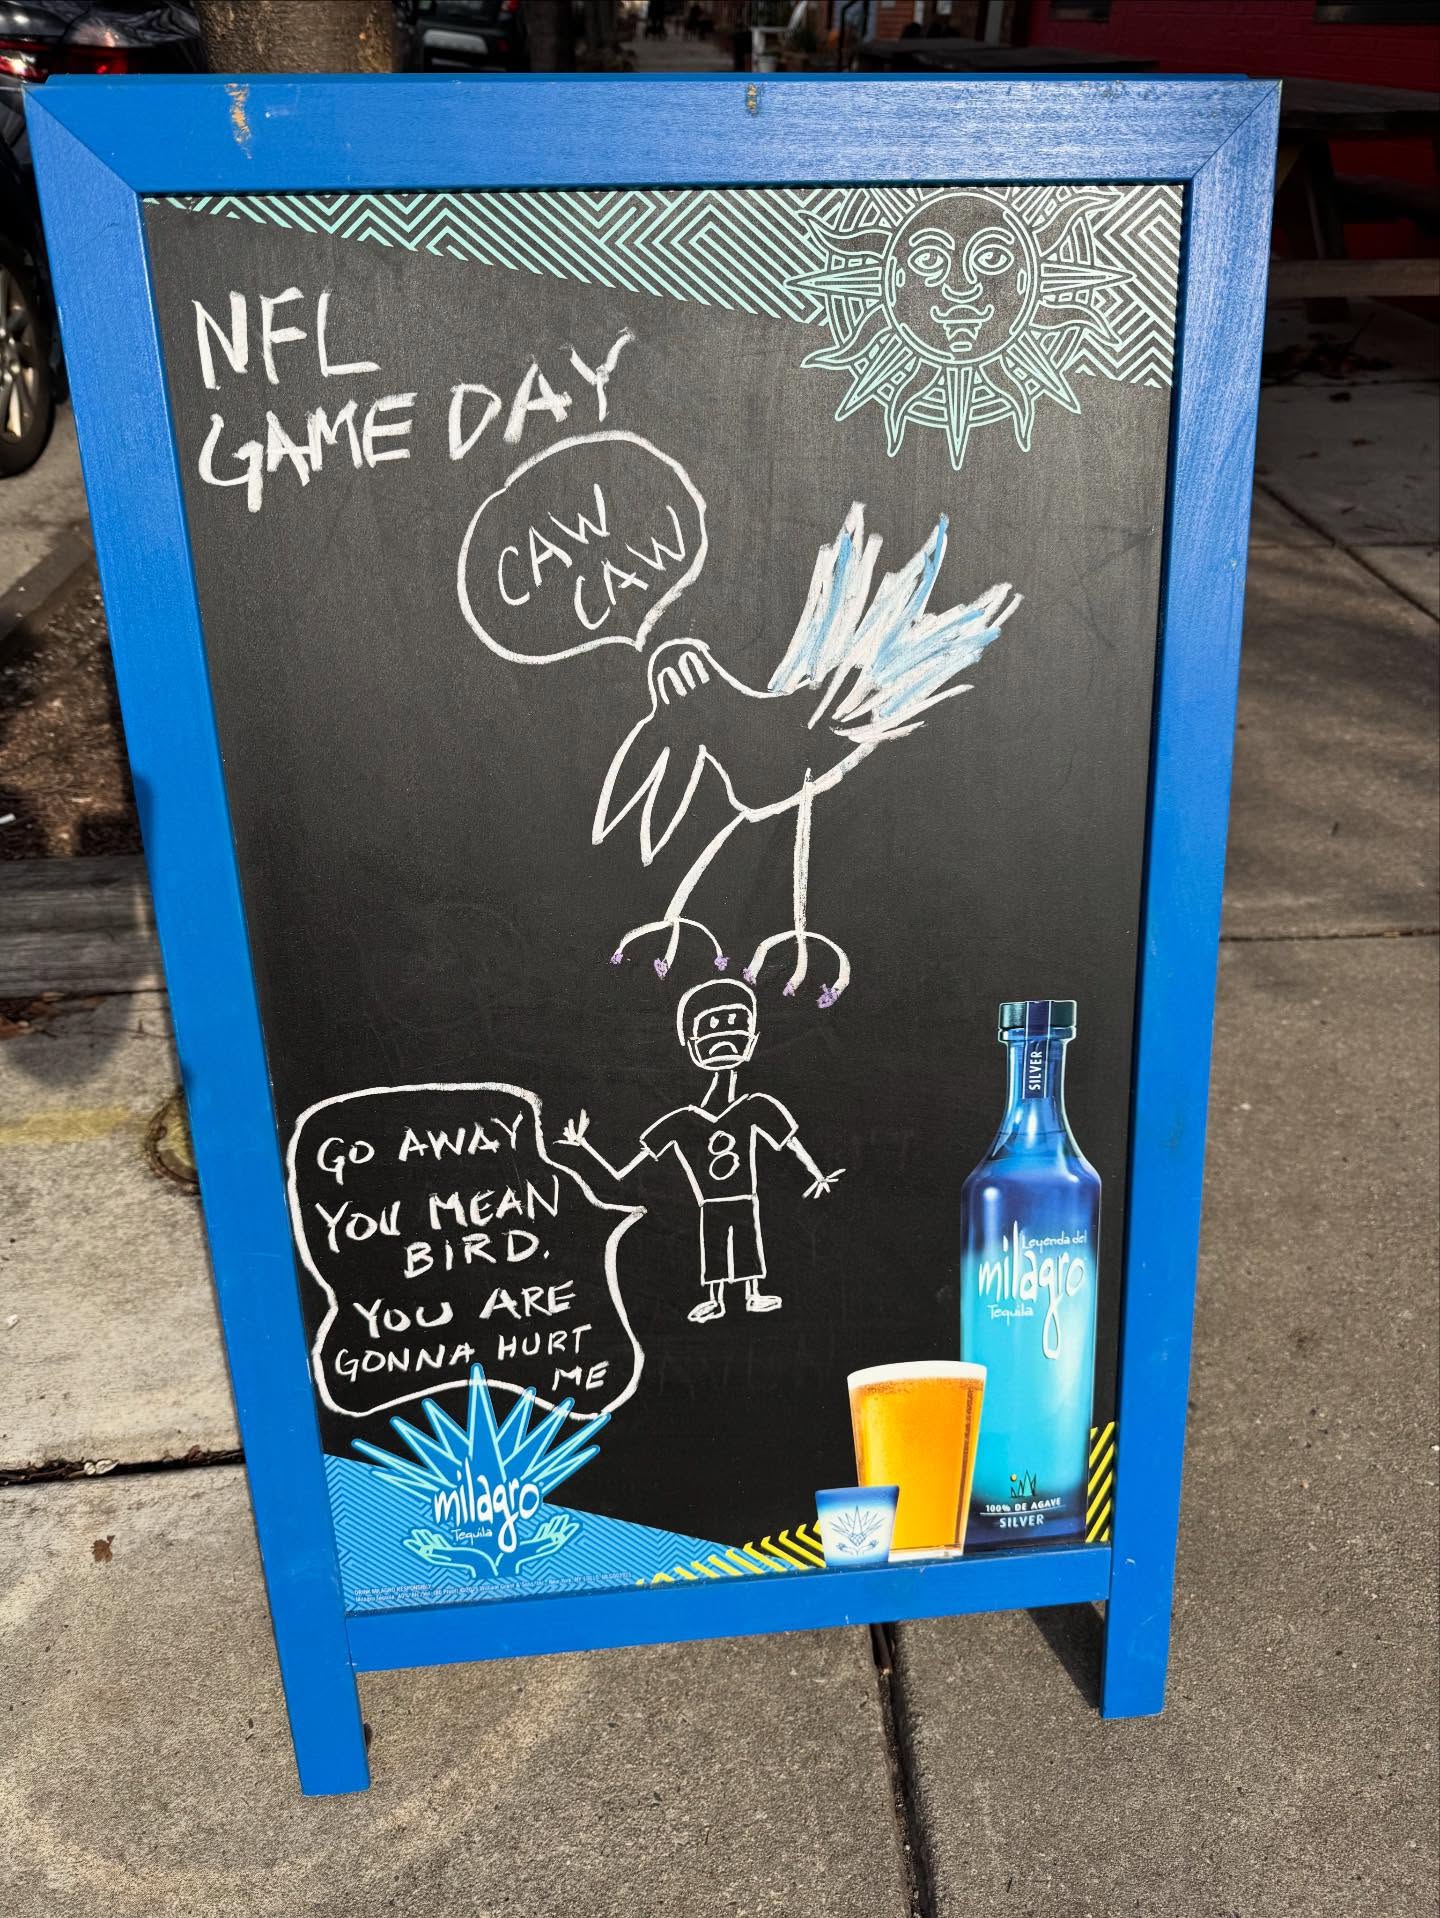 NFL
GAME DAY
CAW
CAW
8
GO AWAY
YOU MEAN
BIRD.
YOU ARE
GONNA HURT
ME
SILVER
Leyenda del
milagro
Tequila
100% DE AGAVE
SILVER
milagro
Tequila
DRINK MILAGRO RESPONSIBLY